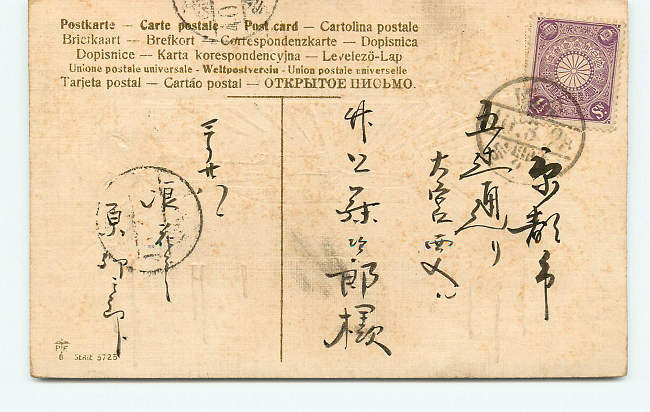 Postkarte — Carte postale — Post card — Cartolina postale
Briefkaart — Brefkort — Correspondenzkarte — Dopisnica
Dopisnice — Karta korespondencyjna — Levelező-Lap
Unione postale universale - Weltpostverein - Union postale universelle
Tarjeta postal — Cartão postal — ОТКРЫТОЕ ПИСЬМО.
京都市
五辻通り
大宮西入
井上弥次郎様
浪花
原
SERIE 5725